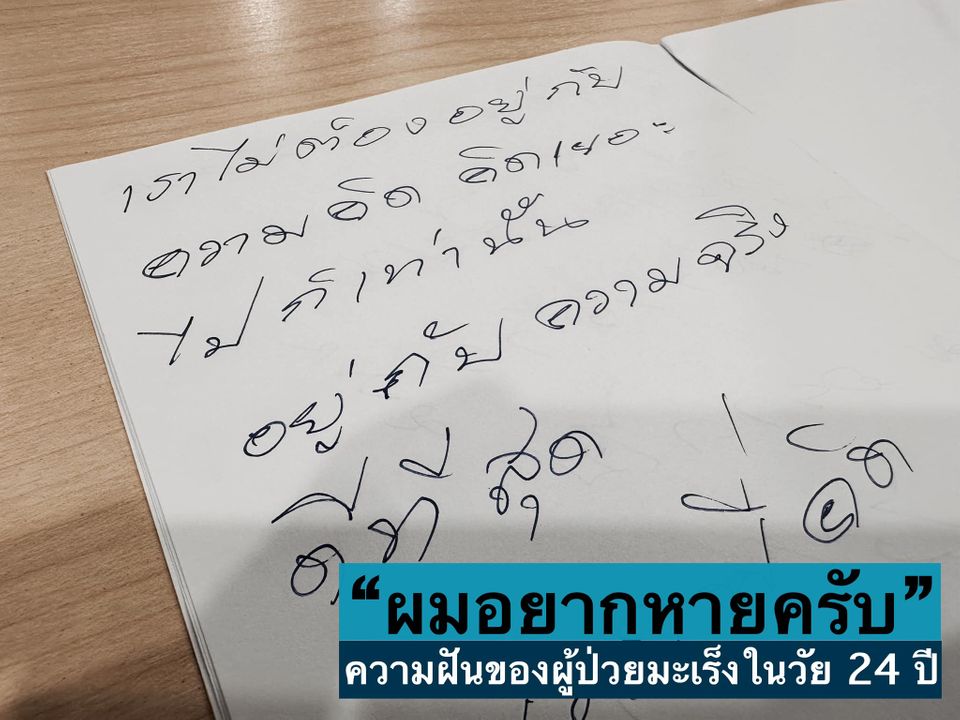 เราไม่ต้องอยู่กับ
ความคิด คิดเยอะ
ไปก็เท่านั้น
อยู่กับความจริง
ดีที่สุด
“ผมอยากหายครับ”
ความฝันของผู้ป่วยมะเร็งในวัย 24 ปี